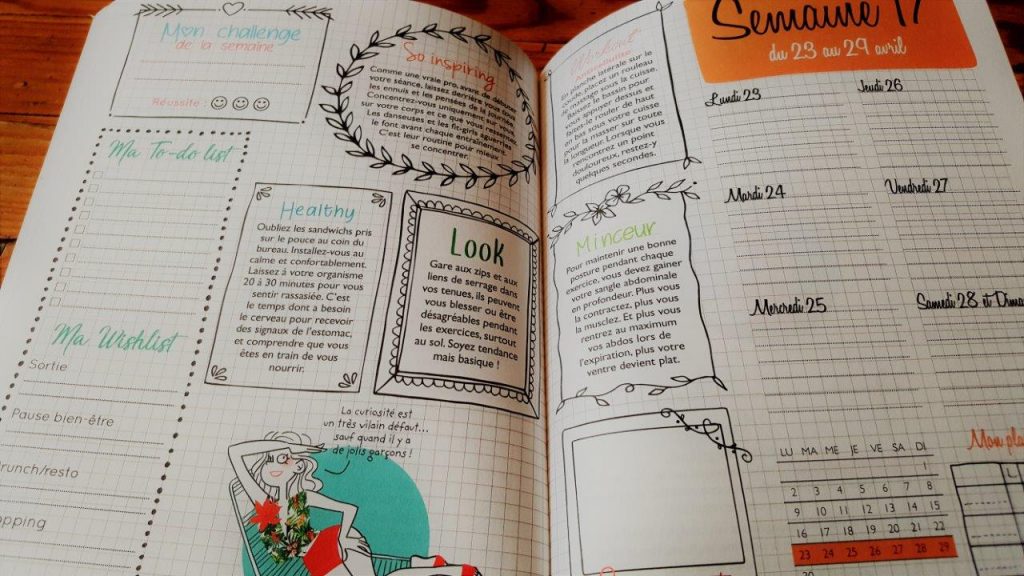 Mon challenge
de la semaine
Réussite :
Ma To-do list
Ma Wishlist
Sortie
Pause bien-être
Brunch/resto
opping
So inspiring
Comme une vraie pro, avant de débuter
votre séance, laissez derrière vous
les ennuis et les pensées de la journée.
Concentrez-vous uniquement
sur votre corps et ce que vous ressentez.
Les danseuses et les fit-girls aguerries
le font avant chaque entraînement.
C'est leur routine pour mieux
se concentrer.
Healthy
Oubliez les sandwichs pris
sur le pouce au coin du
bureau. Installez-vous au
calme et confortablement.
Laissez à votre organisme
20 à 30 minutes pour vous
sentir rassasiée. C'est
le temps dont a besoin
le cerveau pour recevoir
des signaux de l'estomac,
et comprendre que vous
êtes en train de vous
nourrir.
Look
Gare aux zips et aux
liens de serrage dans
vos tenues, ils peuvent
vous blesser ou être
désagréables pendant
les exercices, surtout
au sol. Soyez tendance
mais basique !
La curiosité est
un très vilain défaut...
sauf quand il y a
de jolis garçons !
En planche latérale sur le
coude, placez un rouleau
de massage sous la cuisse.
Baissez le bassin pour
vous appuyer dessus et
faites-le rouler de haut
en bas sous votre cuisse
pour la masser sur toute
la longueur. Lorsque vous
rencontrez un point
douloureux, restez-y
quelques secondes.
Minceur
Pour maintenir une bonne
posture pendant chaque
exercice, vous devez gainer
votre sangle abdominale
en profondeur. Plus vous
la contractez, plus vous
la musclez. Et plus vous
rentrez au maximum
vos abdos lors de
l'expiration, plus votre
ventre devient plat.
Semaine 17
du 23 au 29 avril
Lundi 23
Jeudi 26
Mardi 24
Vendredi 27
Mercredi 25
Samedi 28 et Dima
LU MA ME JE VE SA DI
1
2 3 4 5 6 7 8
9 10 11 12 13 14 15
16 17 18 19 20 21 22
23 24 25 26 27 28 29
30
Mon pla
L